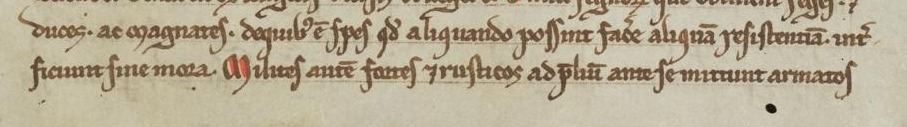 duces. ac magnates. de quib᷒ ē spes qd̛ aliquando possint facẽ aliquā resistentiā. int̛
ficiunt sine mora. Milites autē fortes ⁊ rusticos ad p̄liū ante se mittunt armatos